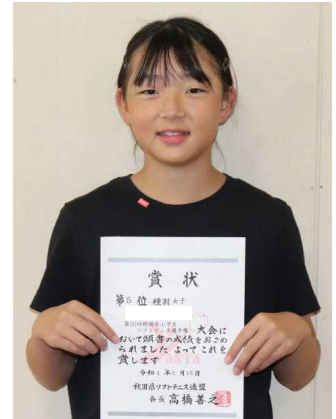 賞状
第5位 種別 女子
ソフトテニス選手権 大会に
おいて頭書の成績をおさめ
られました よってこれを
賞します
令和4年5月15日
秋田県ソフトテニス連盟
会長 高橋善之